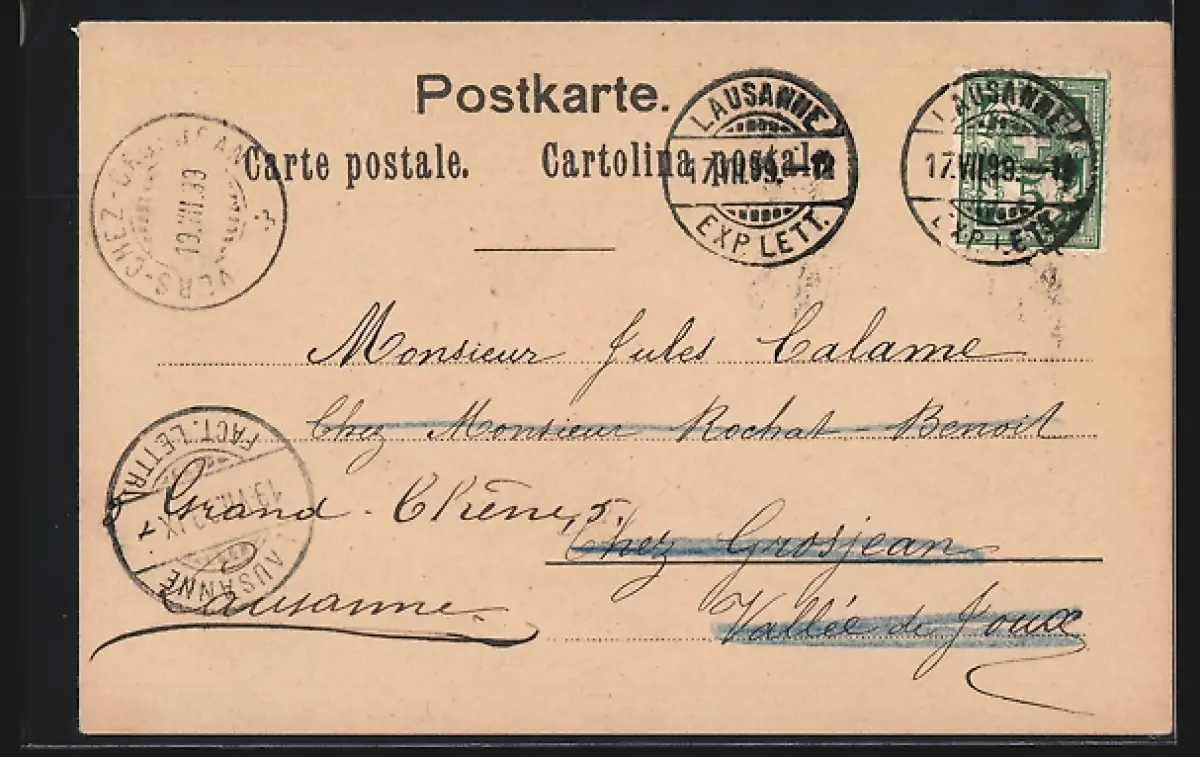 Postkarte.
Carte postale. Cartolina postale.
LAUSANNE
17.VII.99.-12
EXP. LETT.
LAUSANNE
17.VII.99.-12
EXP. LETT.
5
VERS-CHEZ-GROSJEAN
19.VII.99
Monsieur Jules Calame
Chez Monsieur Rochat-Benoit
Grand-Chêne, 5.
Chez Grosjean
Lausanne
Vallée de Joux
FACT. LETTR.
19.VII. IX
LAUSANNE